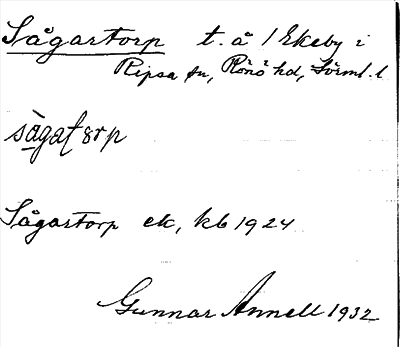 Sågartorp t. å 1 Ekeby i
Ripsa sn, Rönö hd, Sörml. l
sågatorp
Sågartorp ek, kb 1924
Gunnar Annell 1932